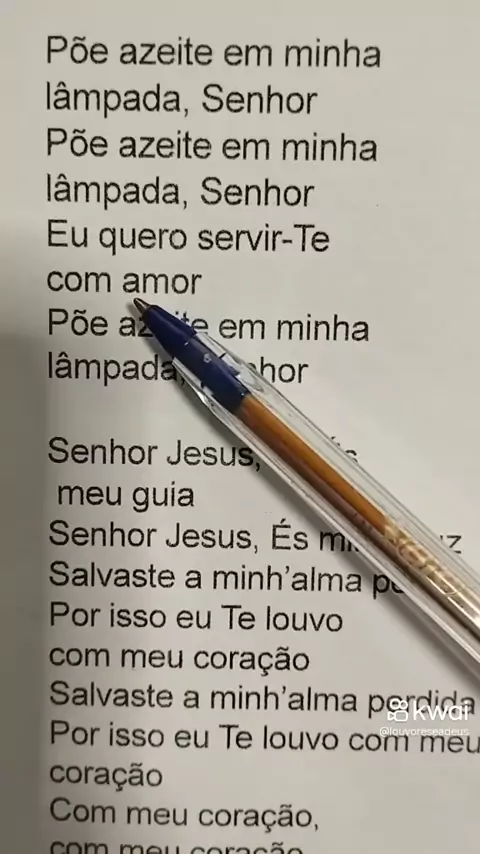 Põe azeite em minha
lâmpada, Senhor
Põe azeite em minha
lâmpada, Senhor
Eu quero servir-Te
com amor
Põe azeite em minha
lâmpada, Senhor
Senhor Jesus,
meu guia
Senhor Jesus, És
Salvaste a minh'alma
Por isso eu Te louvo
com meu coração
Salvaste a minh'alma perdida
Por isso eu Te louvo com meu
coração
Com meu coração,
com meu coração
kwai
@louvoreseadeus